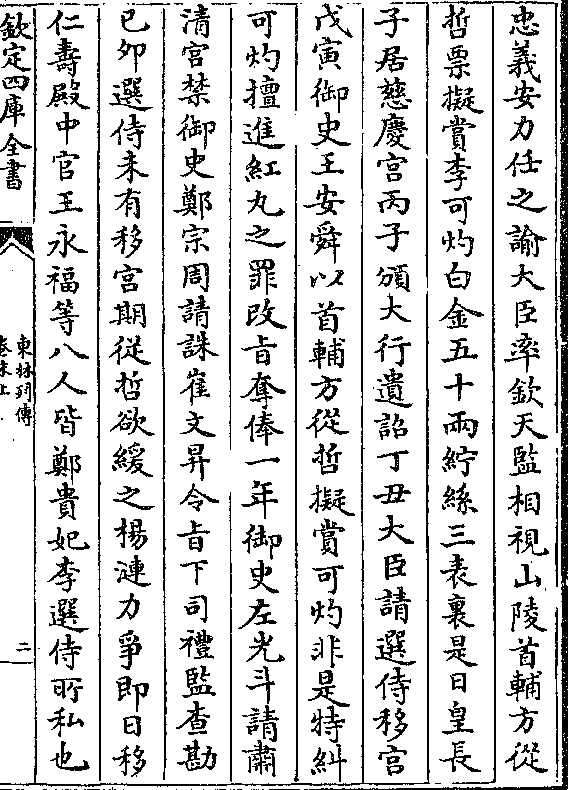 忠義安力任之諭大臣率欽天監相視山陵首輔方從
哲票擬賞李可灼白金五十兩紵絲三表裏是日皇長
子居慈慶宮丙子頒大行遺詔丁丑大臣請選侍移宮
戊寅御史王安舜以首輔方從哲擬賞可灼非是特糾
可灼擅進紅丸之罪改㫖奪俸一年御史左光斗請肅
清宮禁御史鄭宗周請誅崔文昇令㫖下司禮監查勘
已夘選侍未有移宮期從哲欲緩之楊漣力爭即日移
仁壽殿中官王永福等八人皆鄭貴妃李選侍所私也
欽定四庫全書
東林列傳
卷末上
二